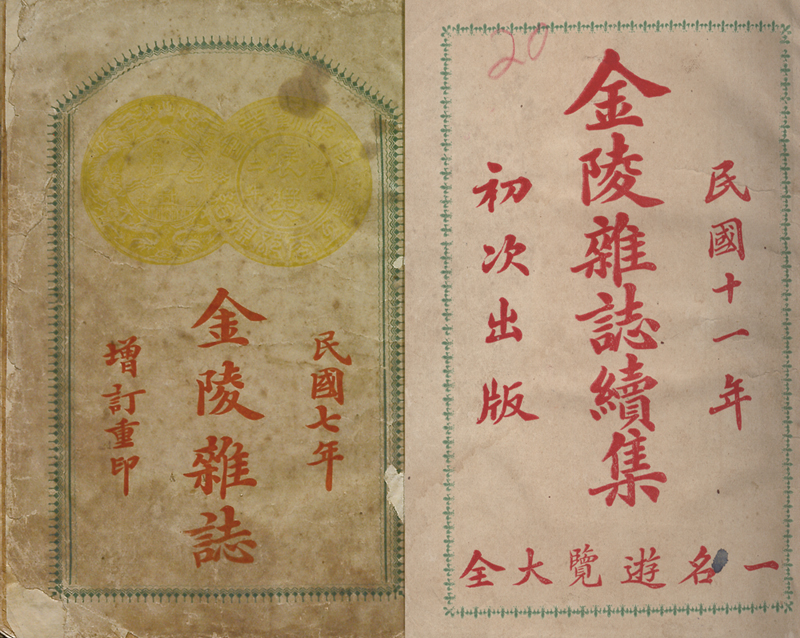 民國七年
金陵雜誌
增訂重印
20
民國十一年
金陵雜誌續集
初次出版
一名遊覽大全